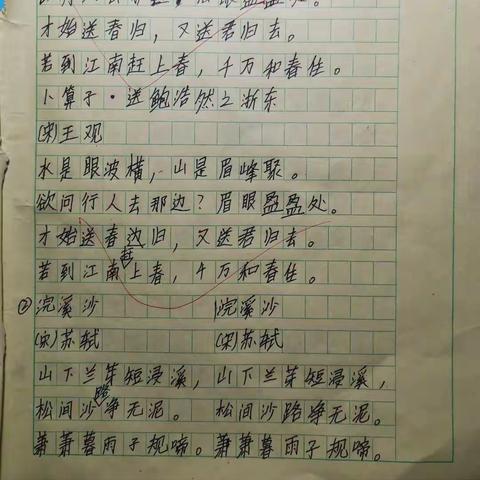 才始送春归，又送君归去。
若到江南赶上春，千万和春住。
卜算子·送鲍浩然之浙东
(宋)王观
水是眼波横，山是眉峰聚。
欲问行人去那边？眉眼盈盈处。
才始送春边归，又送君归去。
若到江南赶上春，千万和春住。
②浣溪沙 浣溪沙
(宋)苏轼 (宋)苏轼
山下兰芽短浸溪，山下兰芽短浸溪，
松间沙路净无泥。松间沙路净无泥。
萧萧暮雨子规啼。萧萧暮雨子规啼。